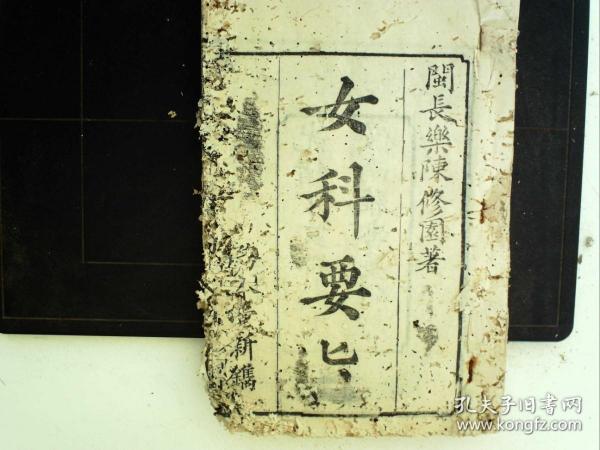 閩長樂陳修園著
女科要匕
新鐫
孔夫子旧书网
www.kongfz.com